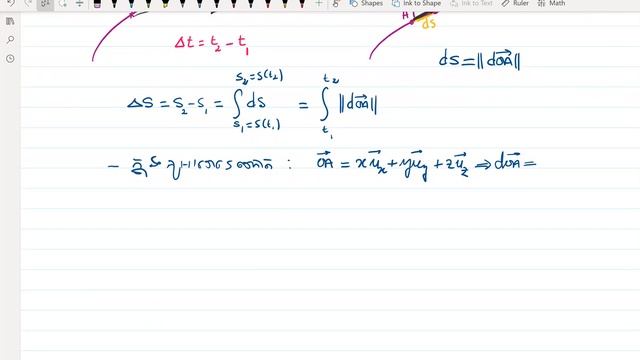 Shapes Ink to Shape Ink to Text Ruler Math
A ds
Δt = t₂ − t₁
ds = ‖dOA⃗‖
ΔS = S₂ − S₁ = ∫_{S₁=S(t₁)}^{S₂=S(t₂)} ds = ∫_{t₁}^{t₂} ‖dOA⃗‖
: OA⃗ = x u⃗ₓ + y u⃗ᵧ + z u⃗_z ⇒ dOA⃗ =